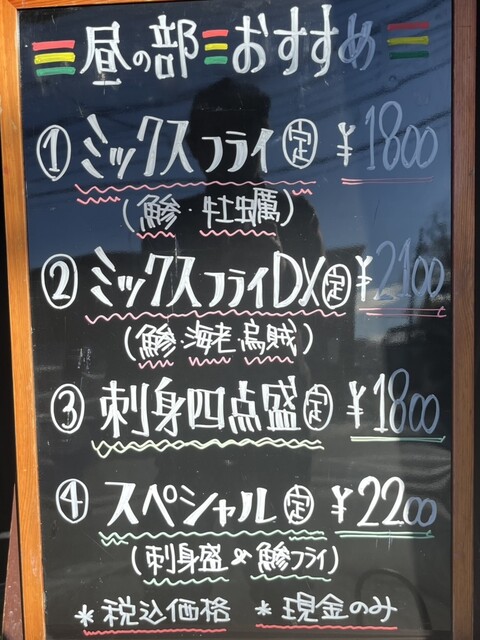 昼の部 おすすめ
① ミックスフライ定 ¥1800
(鯵・牡蠣)
② ミックスフライDX定 ¥2100
(鯵・海老・烏賊)
③ 刺身四点盛定 ¥1800
④ スペシャル定 ¥2200
(刺身盛&鯵フライ)
*税込価格 *現金のみ